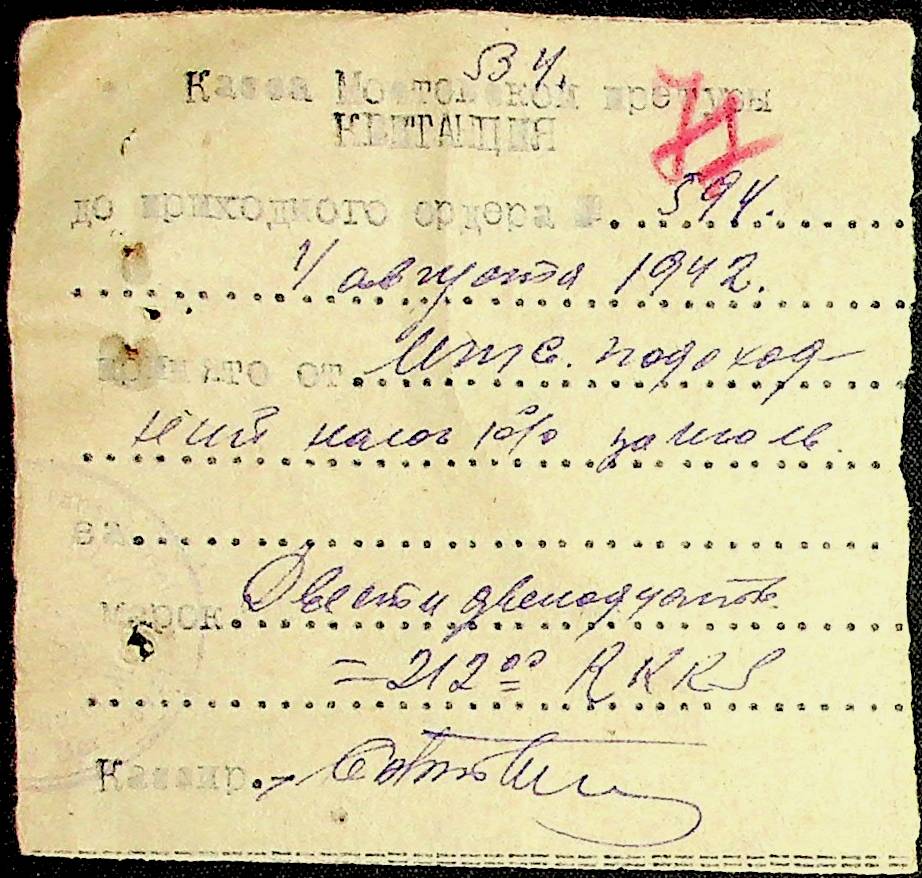 534.
Касса Мостовской претуры
КВИТАНЦИЯ
до приходного ордера № 594.
1/ августа 1942.
принято от МТС. подоход-
ний налог 10% за июль
за
марок Двести двенадцать
= 212 00 RKKS
Кассир.